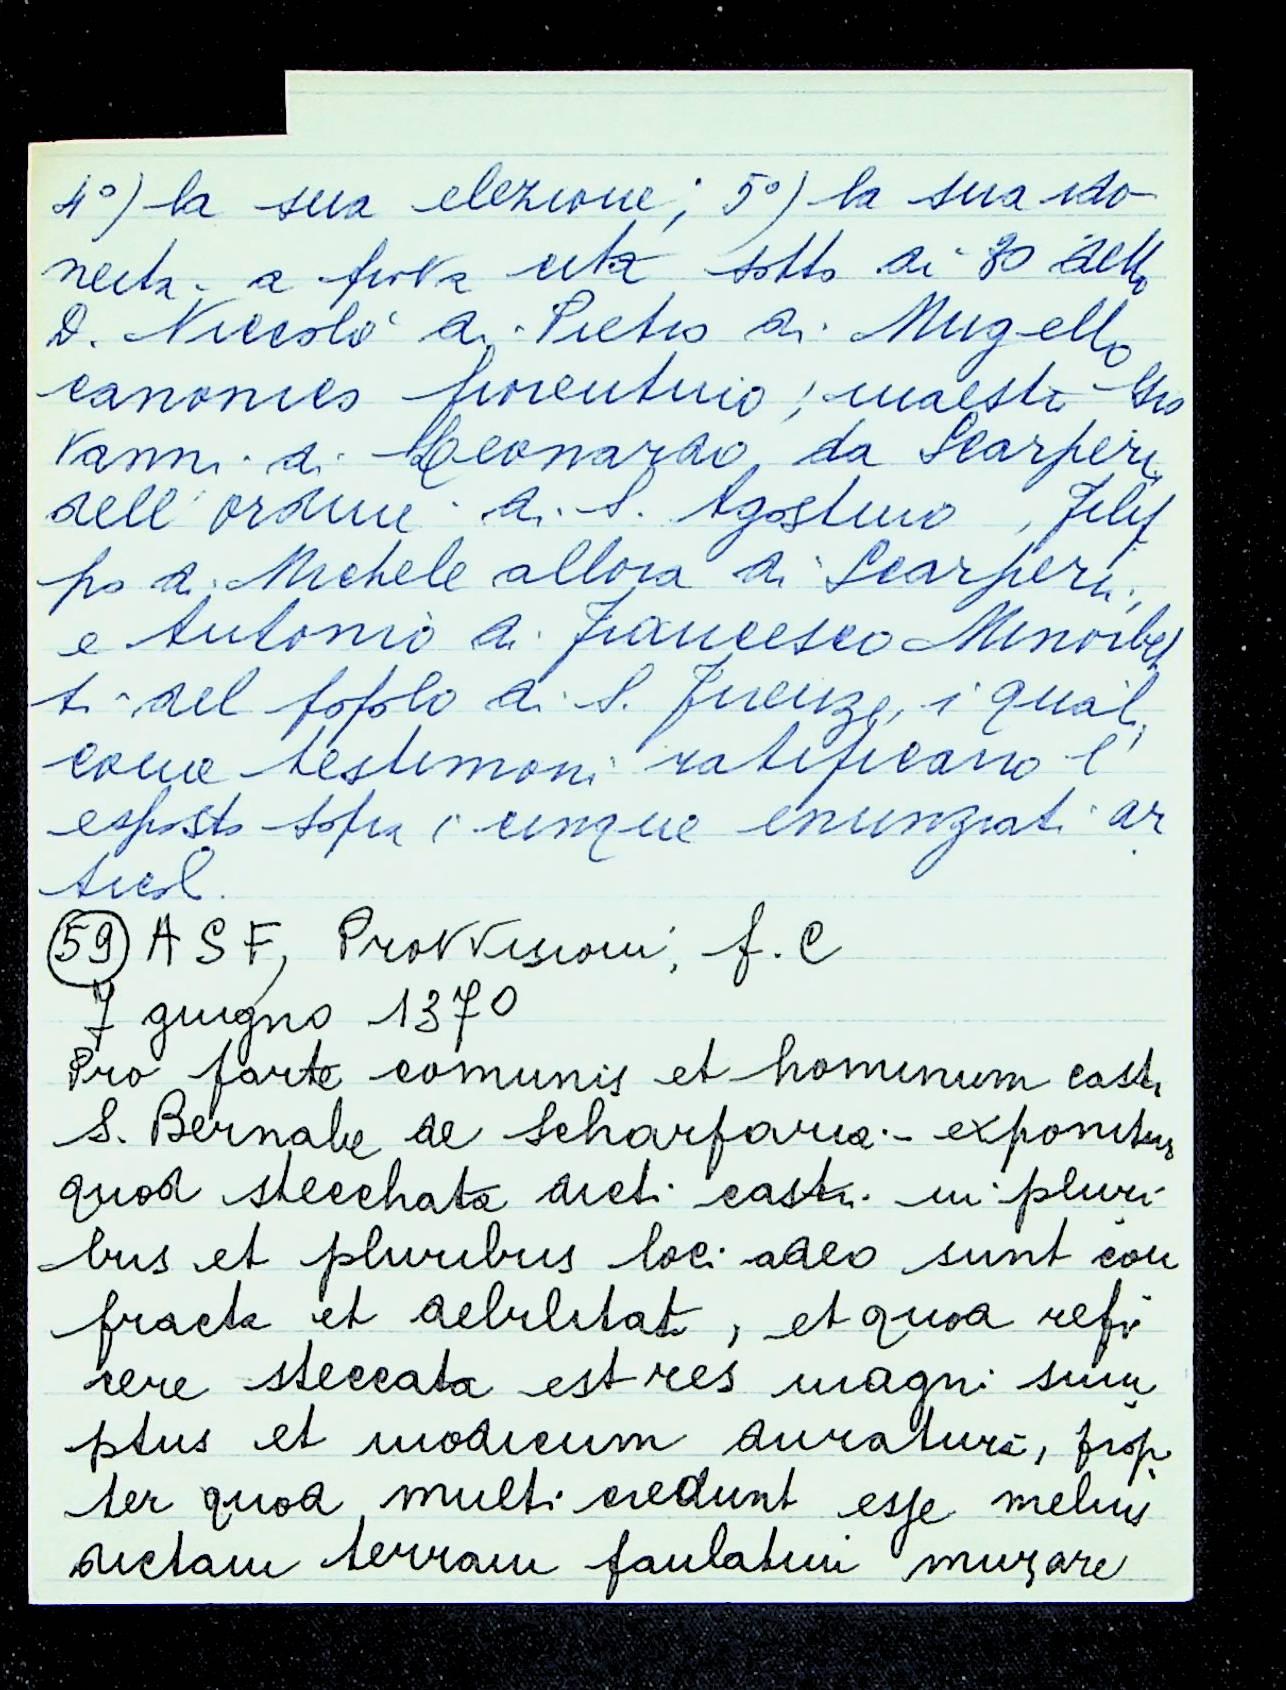 4°) la sua elezione; 5°) la sua ido-
neità. a prova cita sotto di 30 detto
D. Niccolò di Pietro di Mugello
canonico fiorentino; maestro Gio
vanni di Leonardo da Scarperia
dell'ordine di S. Agostino, Filip
po di Michele allora di Scarperia,
e Antonio di Francesco Minorbet
ti del popolo di S. Firenze, i quali
come testimoni ratificano l'
esposto sopra i cinque enunziati ar
ticoli.
59 ASF, Provvisioni, f. C
7 giugno 1370
Pro parte comunis et hominum castri
S. Bernabe de Scharparia - exponitur
quod stecchata dicti castri in pluri
bus et pluribus loci adeo sunt con
fracta et debilitati, et quod refi
cere steccata est res magni sum
ptus et modicum duratura, prop
ter quod multi credunt esse melius
dictam terram paulatim murare